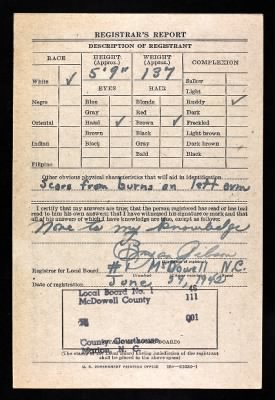 REGISTRAR'S REPORT
DESCRIPTION OF REGISTRANT
RACE HEIGHT (Approx.) WEIGHT (Approx.) COMPLEXION
5' 9" 137
White ✓ EYES HAIR Sallow
Light
Negro Blue Blonde Ruddy ✓
Gray Red Dark
Oriental Hazel ✓ Brown ✓ Freckled
Brown Black Light brown
Indian Black Gray Dark brown
Bald Black
Filipino
Other obvious physical characteristics that will aid in identification
Scars from burns on left arm
I certify that my answers are true; that the person registered has read or has had
read to him his own answers; that I have witnessed his signature or mark and that
all of his answers of which I have knowledge are true, except as follows:
None to my knowledge
Registrar for Local Board #1 McDowell N.C.
Date of registration June
Local Board No. 1
McDowell County 111
001
County Courthouse
Marion, N. C.
(The stamp of the Local Board having jurisdiction of the registrant
shall be placed in the above space)
U. S. GOVERNMENT PRINTING OFFICE